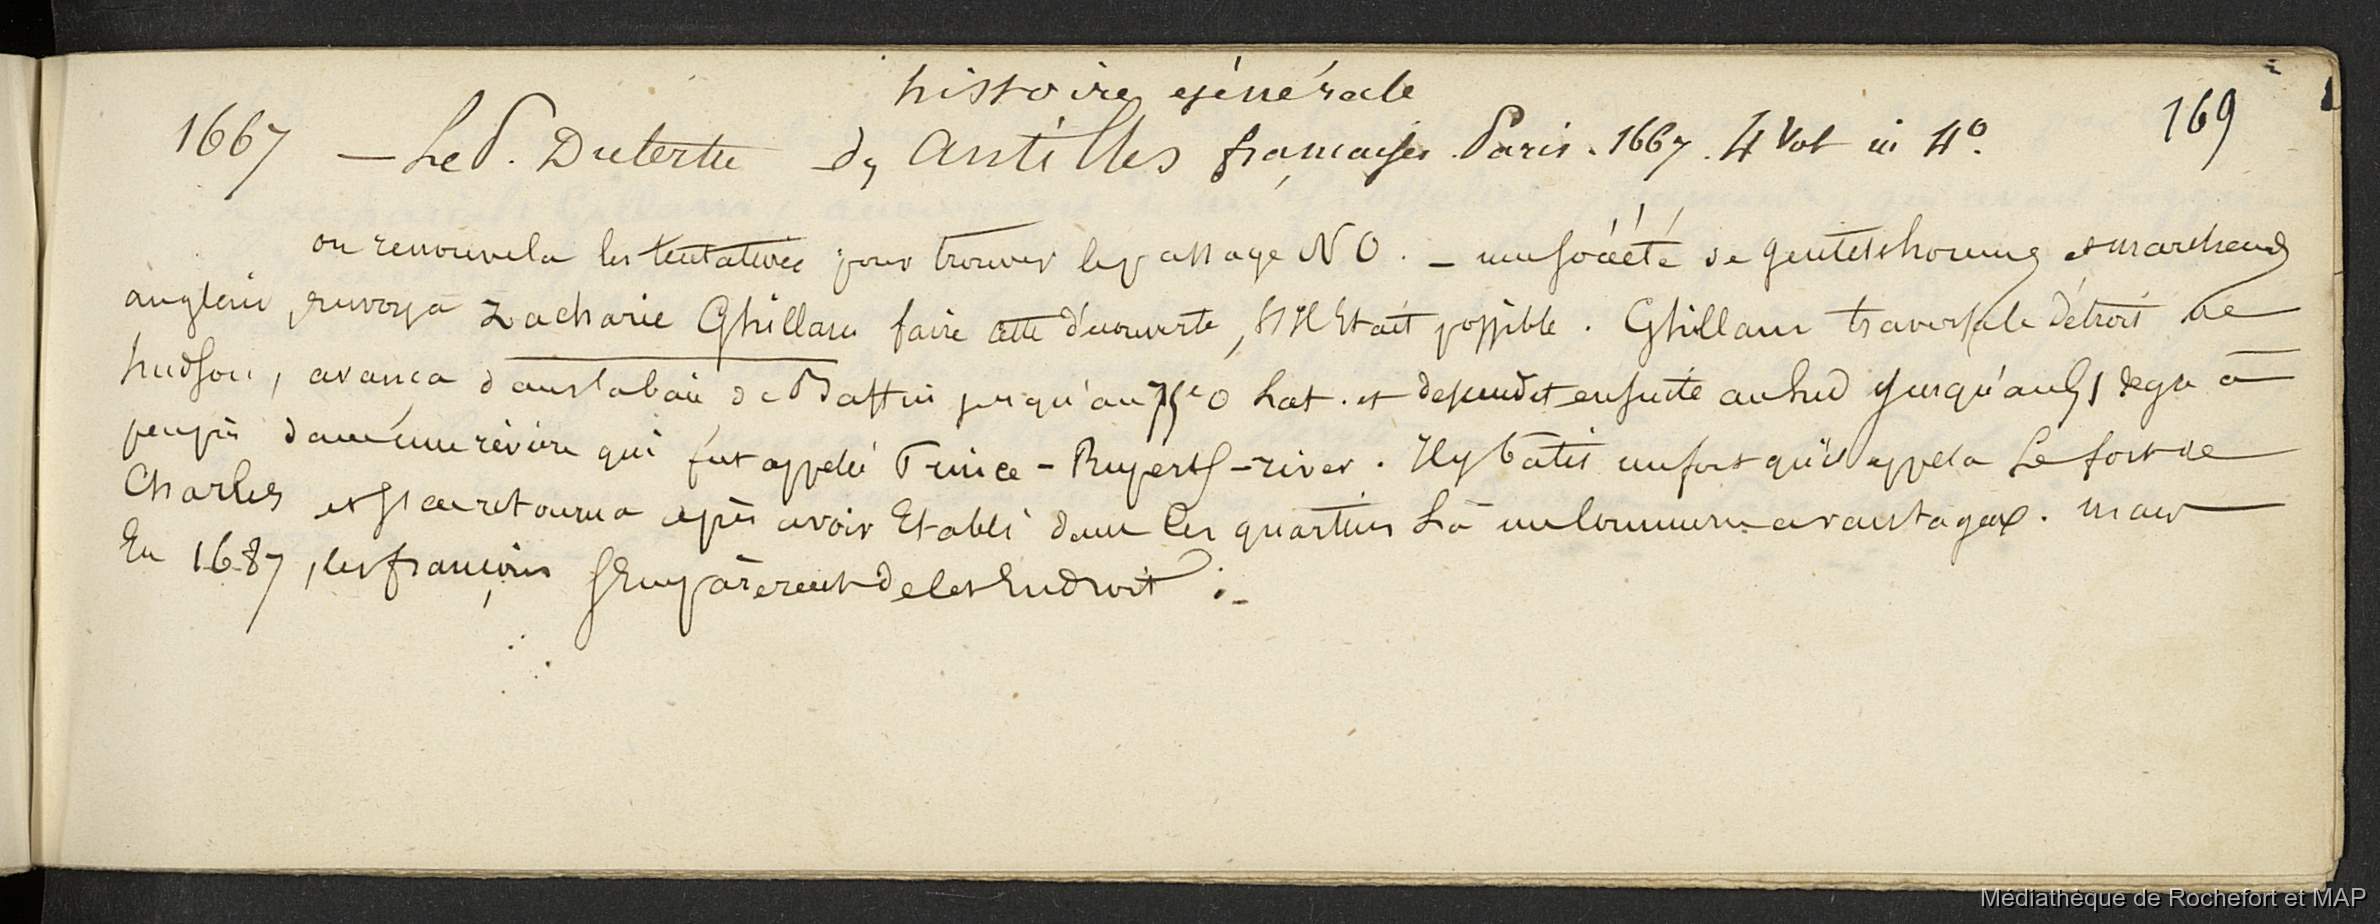 histoire générale
169
1667 — Le P. Dutertre des Antilles françaises. Paris. 1667. 4 Vol in 4°.
on renouvela les tentatives pour trouver le passage NO. — une société de gentilshommes et marchands
anglais, envoya Zacharie Ghillam faire cette découverte, s'il Etait possible. Ghillam traversa le détroit de
hudson, avança dans la baie de Baffin jusqu'au 75e Lat. et descendit ensuite au Sud jusqu'au 51 degré à
peu près dans une rivière qui fut appelée Prince-Ruperts-river. Il y batit un fort qu'il appela Le fort de
Charles et s'en retourna après avoir Etabli dans Ces quartiers Là un Commerce avantageux. mais
En 1687, les françois s'Emparèrent de cet Endroit.
Médiathèque de Rochefort et MAP